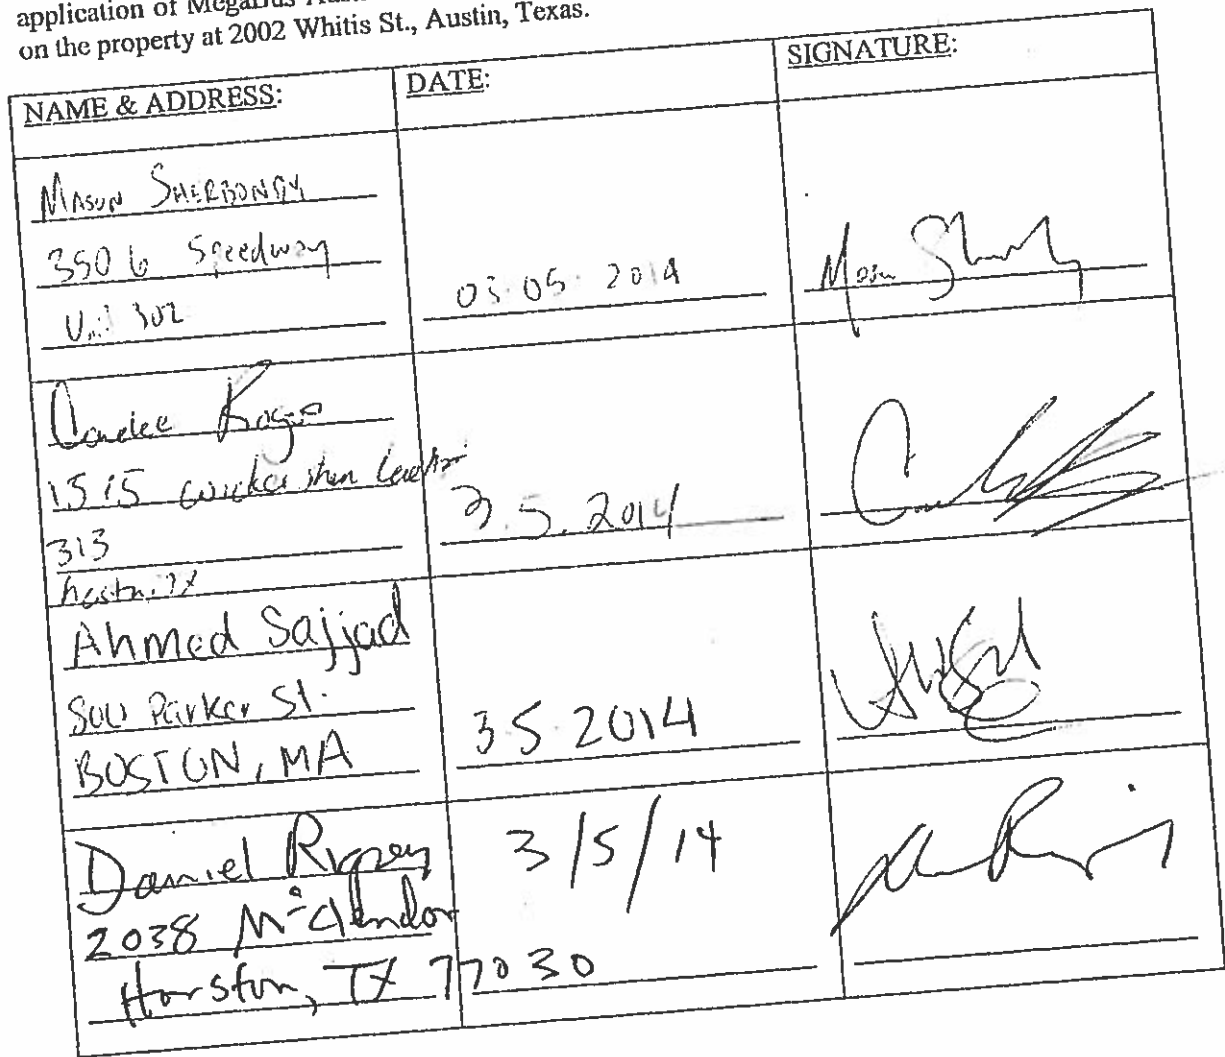 application of Megabus
on the property at 2002 Whitis St., Austin, Texas.
NAME & ADDRESS:
DATE:
SIGNATURE:
MASON SHERBONDY
3506 Speedway
Unit 302
03 05 2014
Candee
1515
313
3.5.2014
Ahmed Sajjad
Parker St.
BOSTON, MA
3 5 2014
Daniel
2038 McClendon
Houston, TX 77030
3/5/14